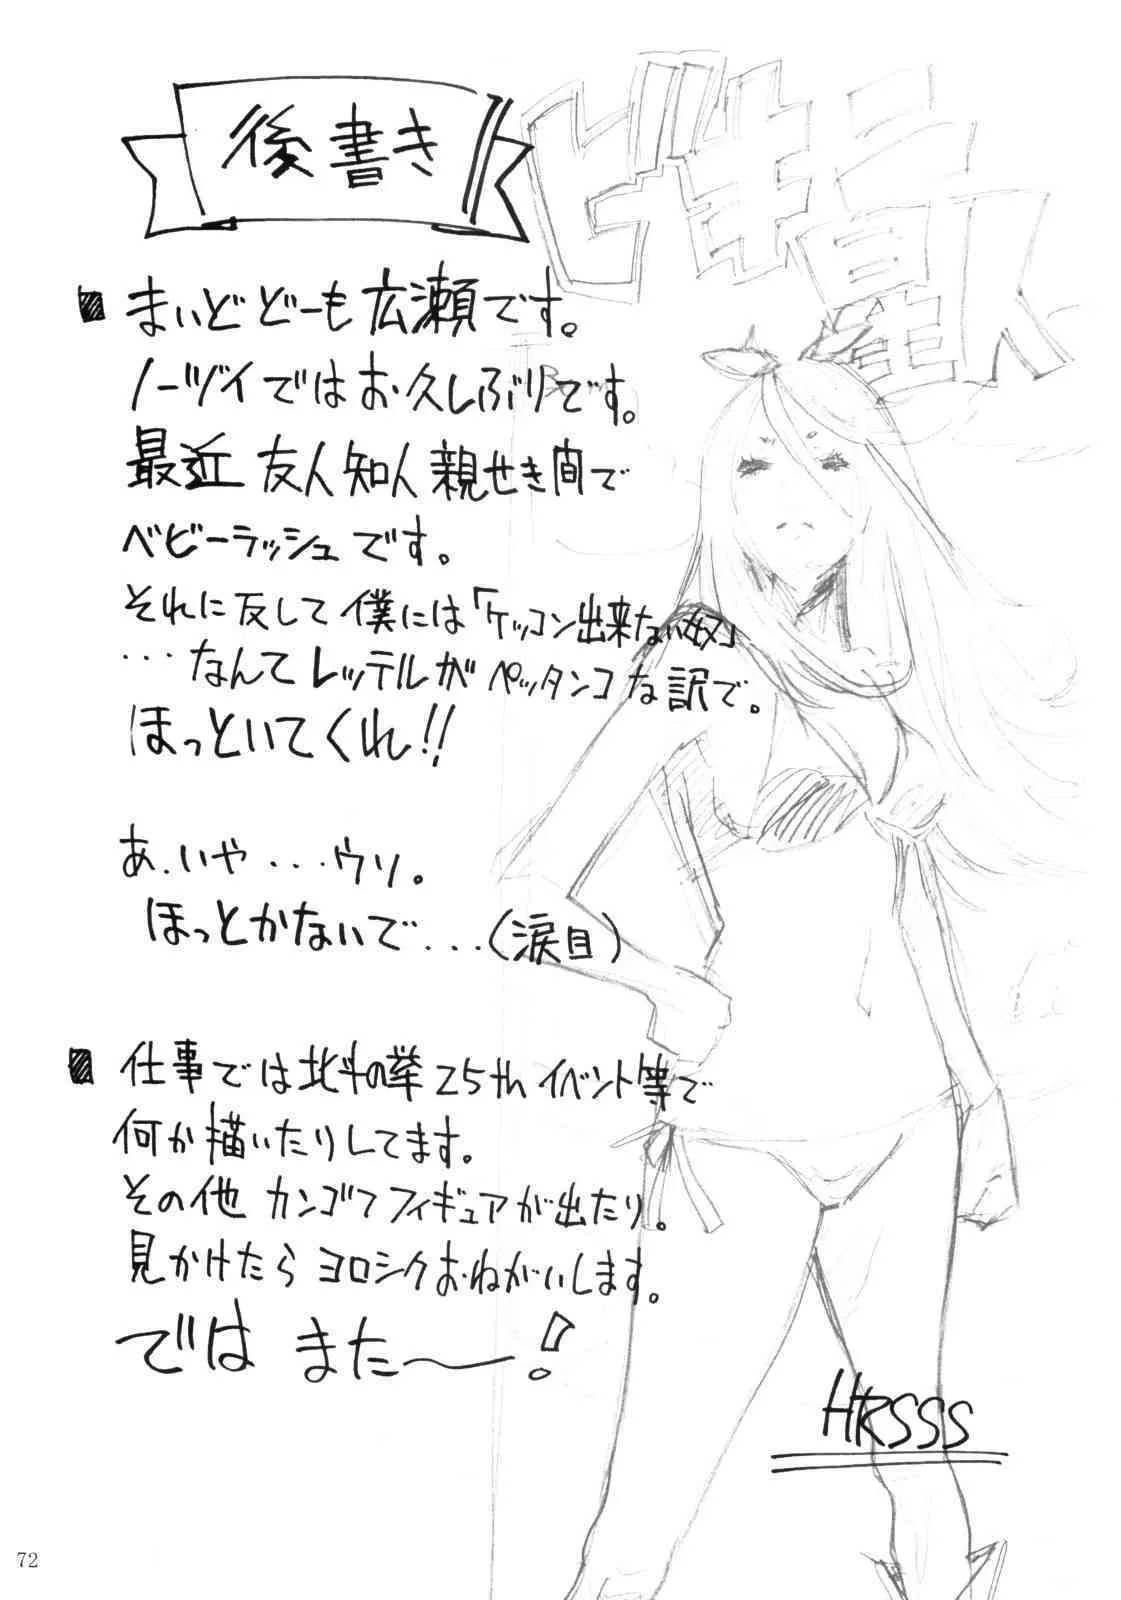 後書き
まいどどーも広瀬です。
ノーヅイではお久しぶりです。
最近 友人知人親せき間で
ベビーラッシュです。
それに反して僕には「ケッコン出来ない奴」
・・・なんてレッテルがペッタンコな訳で。
ほっといてくれ!!
あ、いや・・・ウソ。
ほっとかないで・・・(涙目)
仕事では北斗の拳25thイベント等で
何か描いたりしてます。
その他 カンゴフフィギュアが出たり。
見かけたらヨロシクおねがいします。
では また〜!
HRSSS
72